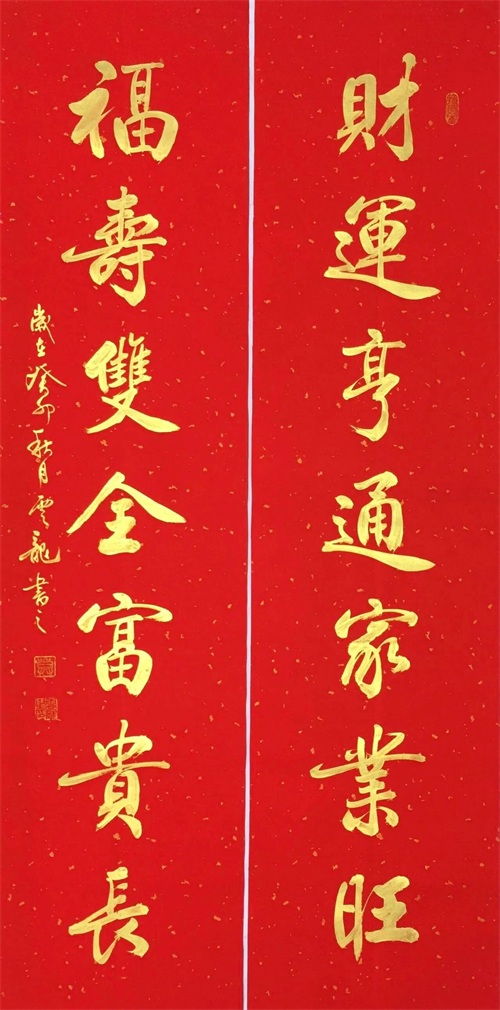 財運亨通家業旺
福壽雙全富貴長
歲在癸卯秋月雲龍書之